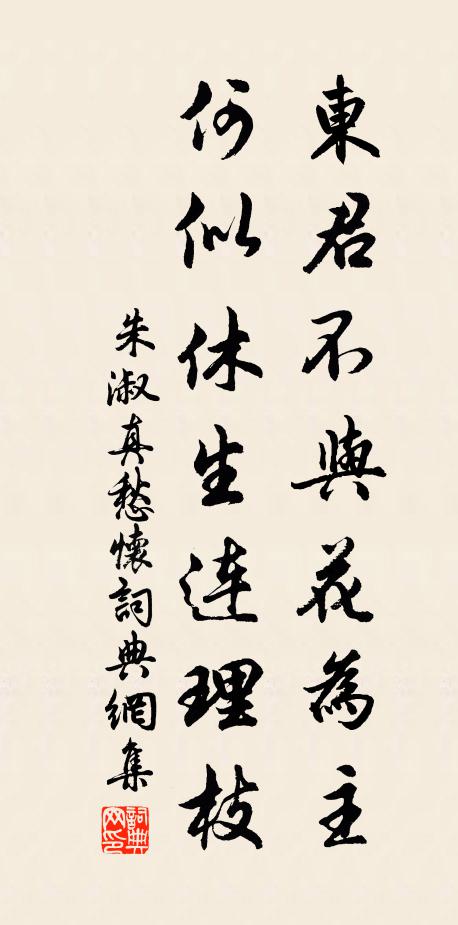 東君不與花為主
何似休生連理枝
朱淑真愁懷詞典網集
詞典网印